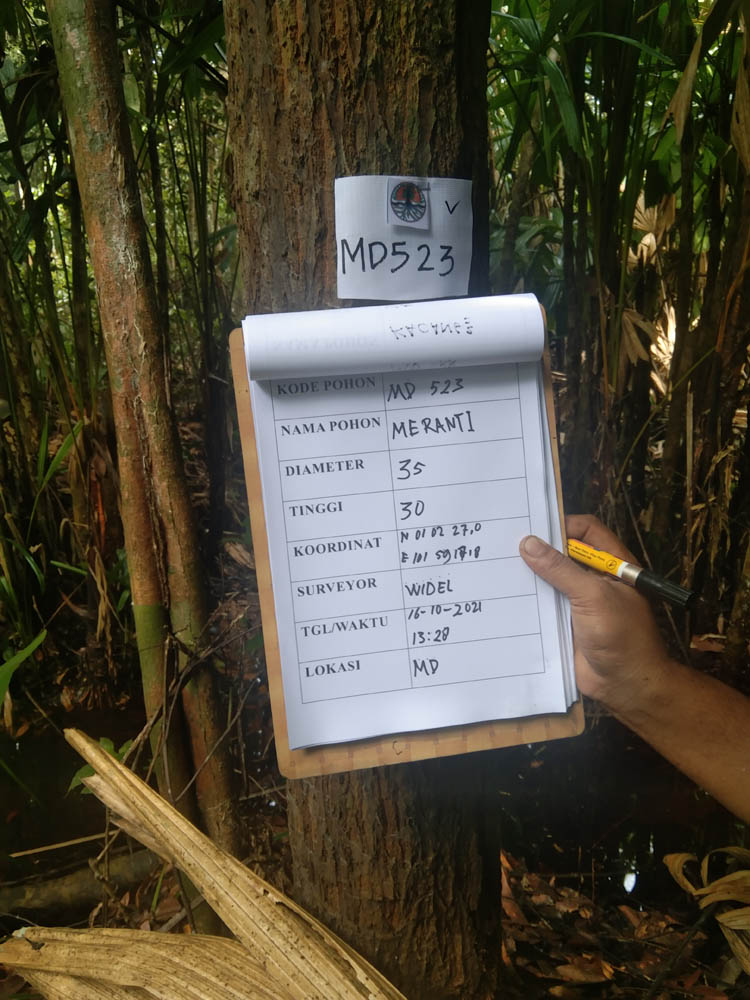 MD523
KODE POHON MD 523
NAMA POHON MERANTI
DIAMETER 35
TINGGI 30
KOORDINAT N 01 02 27,0
E 101 59
SURVEYOR WIDEL
TGL/WAKTU 16-10-2021
13:28
LOKASI MD